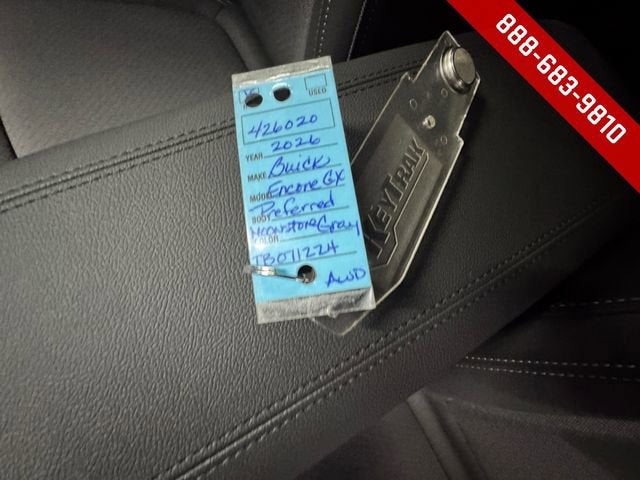 888-683-9810
USED
426020
YEAR 2026
MAKE Buick
MODEL Encore GX
BODY Preferred
COLOR Moonstone Gray
TB071224
AWD
KEYTRAK